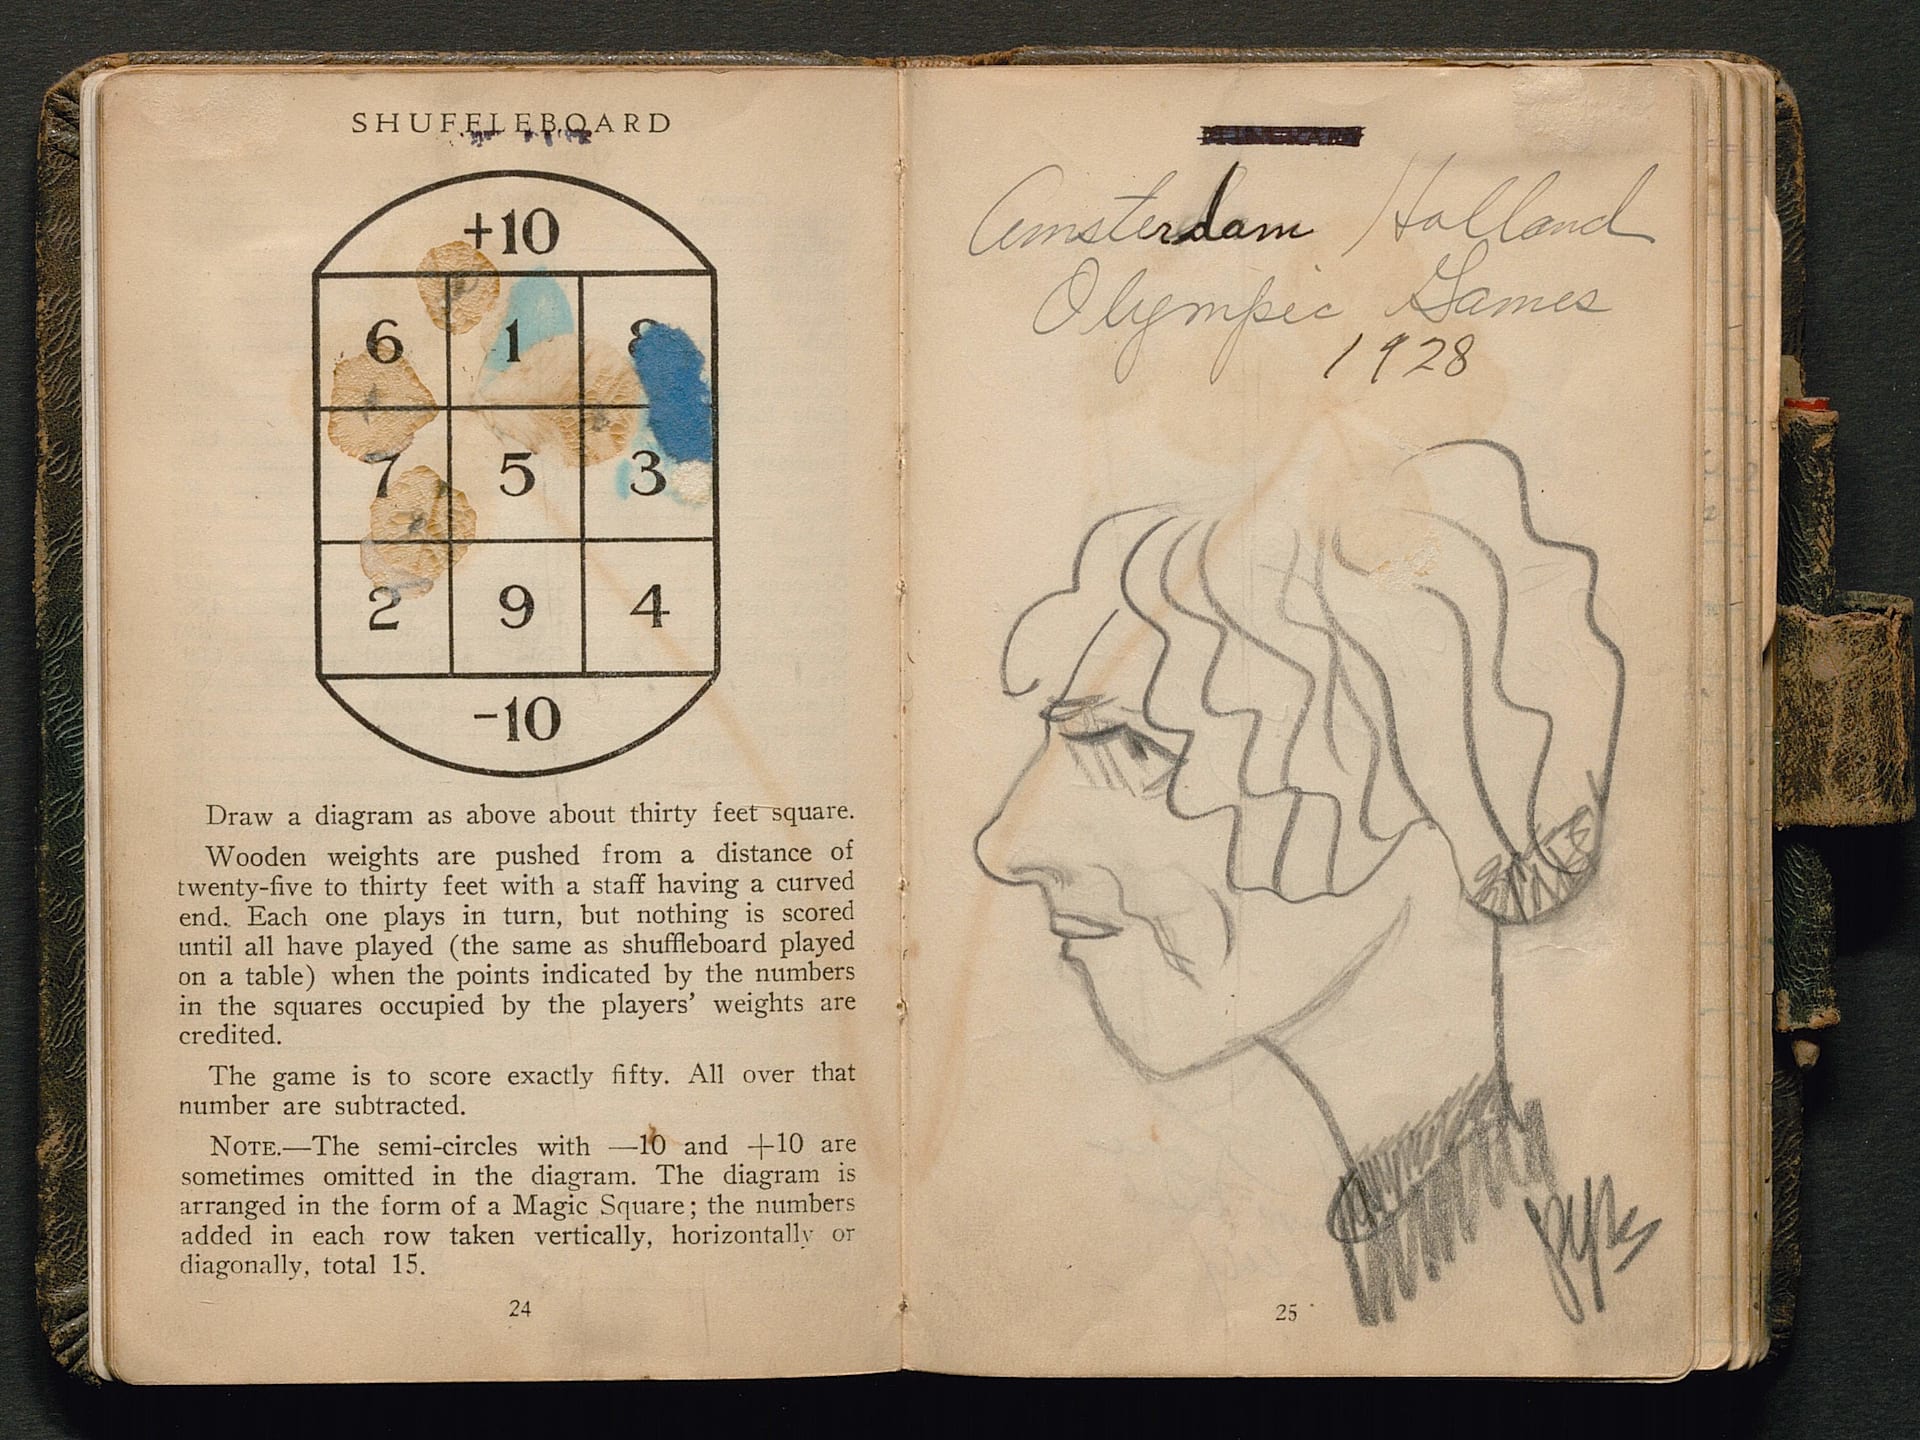 SHUFFLEBOARD
+10
6 1 8
7 5 3
2 9 4
-10
Draw a diagram as above about thirty feet square.
Wooden weights are pushed from a distance of
twenty-five to thirty feet with a staff having a curved
end. Each one plays in turn, but nothing is scored
until all have played (the same as shuffleboard played
on a table) when the points indicated by the numbers
in the squares occupied by the players' weights are
credited.
The game is to score exactly fifty. All over that
number are subtracted.
NOTE.—The semi-circles with —10 and +10 are
sometimes omitted in the diagram. The diagram is
arranged in the form of a Magic Square; the numbers
added in each row taken vertically, horizontally or
diagonally, total 15.
24
Amsterdam Holland
Olympic Games
1928
25